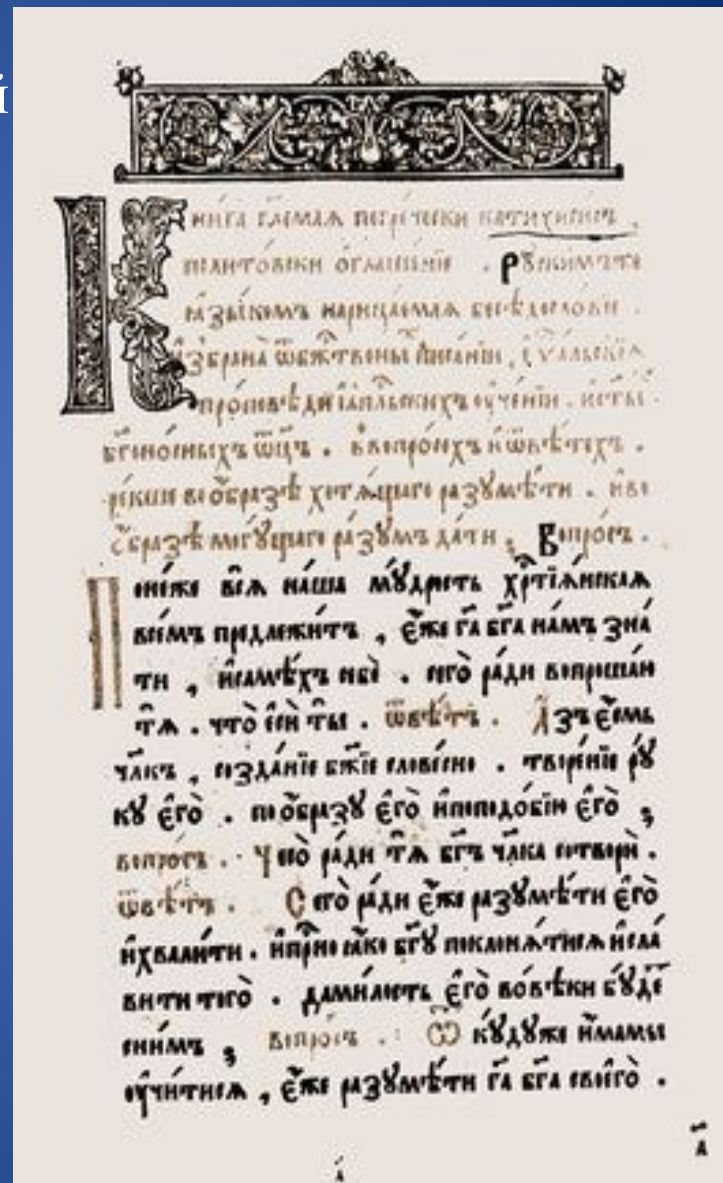 й
Кни́га гл҃емая погре́чески катихи́сис ,
полито́вски оглаше́нїе . Ру́скимъ же
ꙗ҆зы́комъ нарица́емая бесѣдосло́вїе .
И҆збрана̀ ѿбж҃тве́ны писа́нїи , є҆ѵа́льскїѧ
про́повѣди и҆а҆пл҃ьскихъ ѹ҆че́нїи . и҆ст҃ы́
бг҃оно́сныхъ ѿц҃ъ . ввопро́сѣхъ и҆ѿвѣ́тѣхъ .
ре́кше воо́бразѣ хотѧ́щаго разꙋмѣ́ти . и҆во
ѻ҆́бразѣ могꙋ́щаго ра́зꙋмъ да́ти , Вопро́съ .
Поне́же всѧ̀ на́ша мꙋ́дрость хрⷭ҇тїѧ́нскаѧ
всѣ́мъ предлежи́тъ , є҆́же гⷭ҇а бг҃а на́мъ зна́
ти , и҆самѣ́хъ себѐ . сего̀ ра́ди вопроша́ю
тѧ̀ . что̀ є҆сѝ ты̀ . ѿвѣ́тъ . А҆́зъ є҆́смь
чл҃къ , созда́нїе бж҃їе слове́сно . творе́нїе рꙋ
кꙋ̀ є҆го̀ . поо́бразꙋ є҆го̀ и҆поподо́бїю є҆го̀ ,
вопро́съ . Чесо̀ ра́ди тѧ̀ бг҃ъ чл҃ка сотворѝ .
ѿвѣ́тъ . Сего̀ ра́ди є҆́же разꙋмѣ́ти є҆го̀
и҆хвали́ти . и҆при́сно бг҃ꙋ поклонѧ́тисѧ и҆сла́
вити того̀ . дами́лость є҆го̀ во́вѣки бꙋ́де
сни́мъ , вопро́съ . Ѿ кꙋ́дꙋже и҆́мамы
ѹ҆чи́тисѧ , є҆́же разꙋмѣ́ти гⷭ҇а бг҃а своего̀ .
а҃
а҃